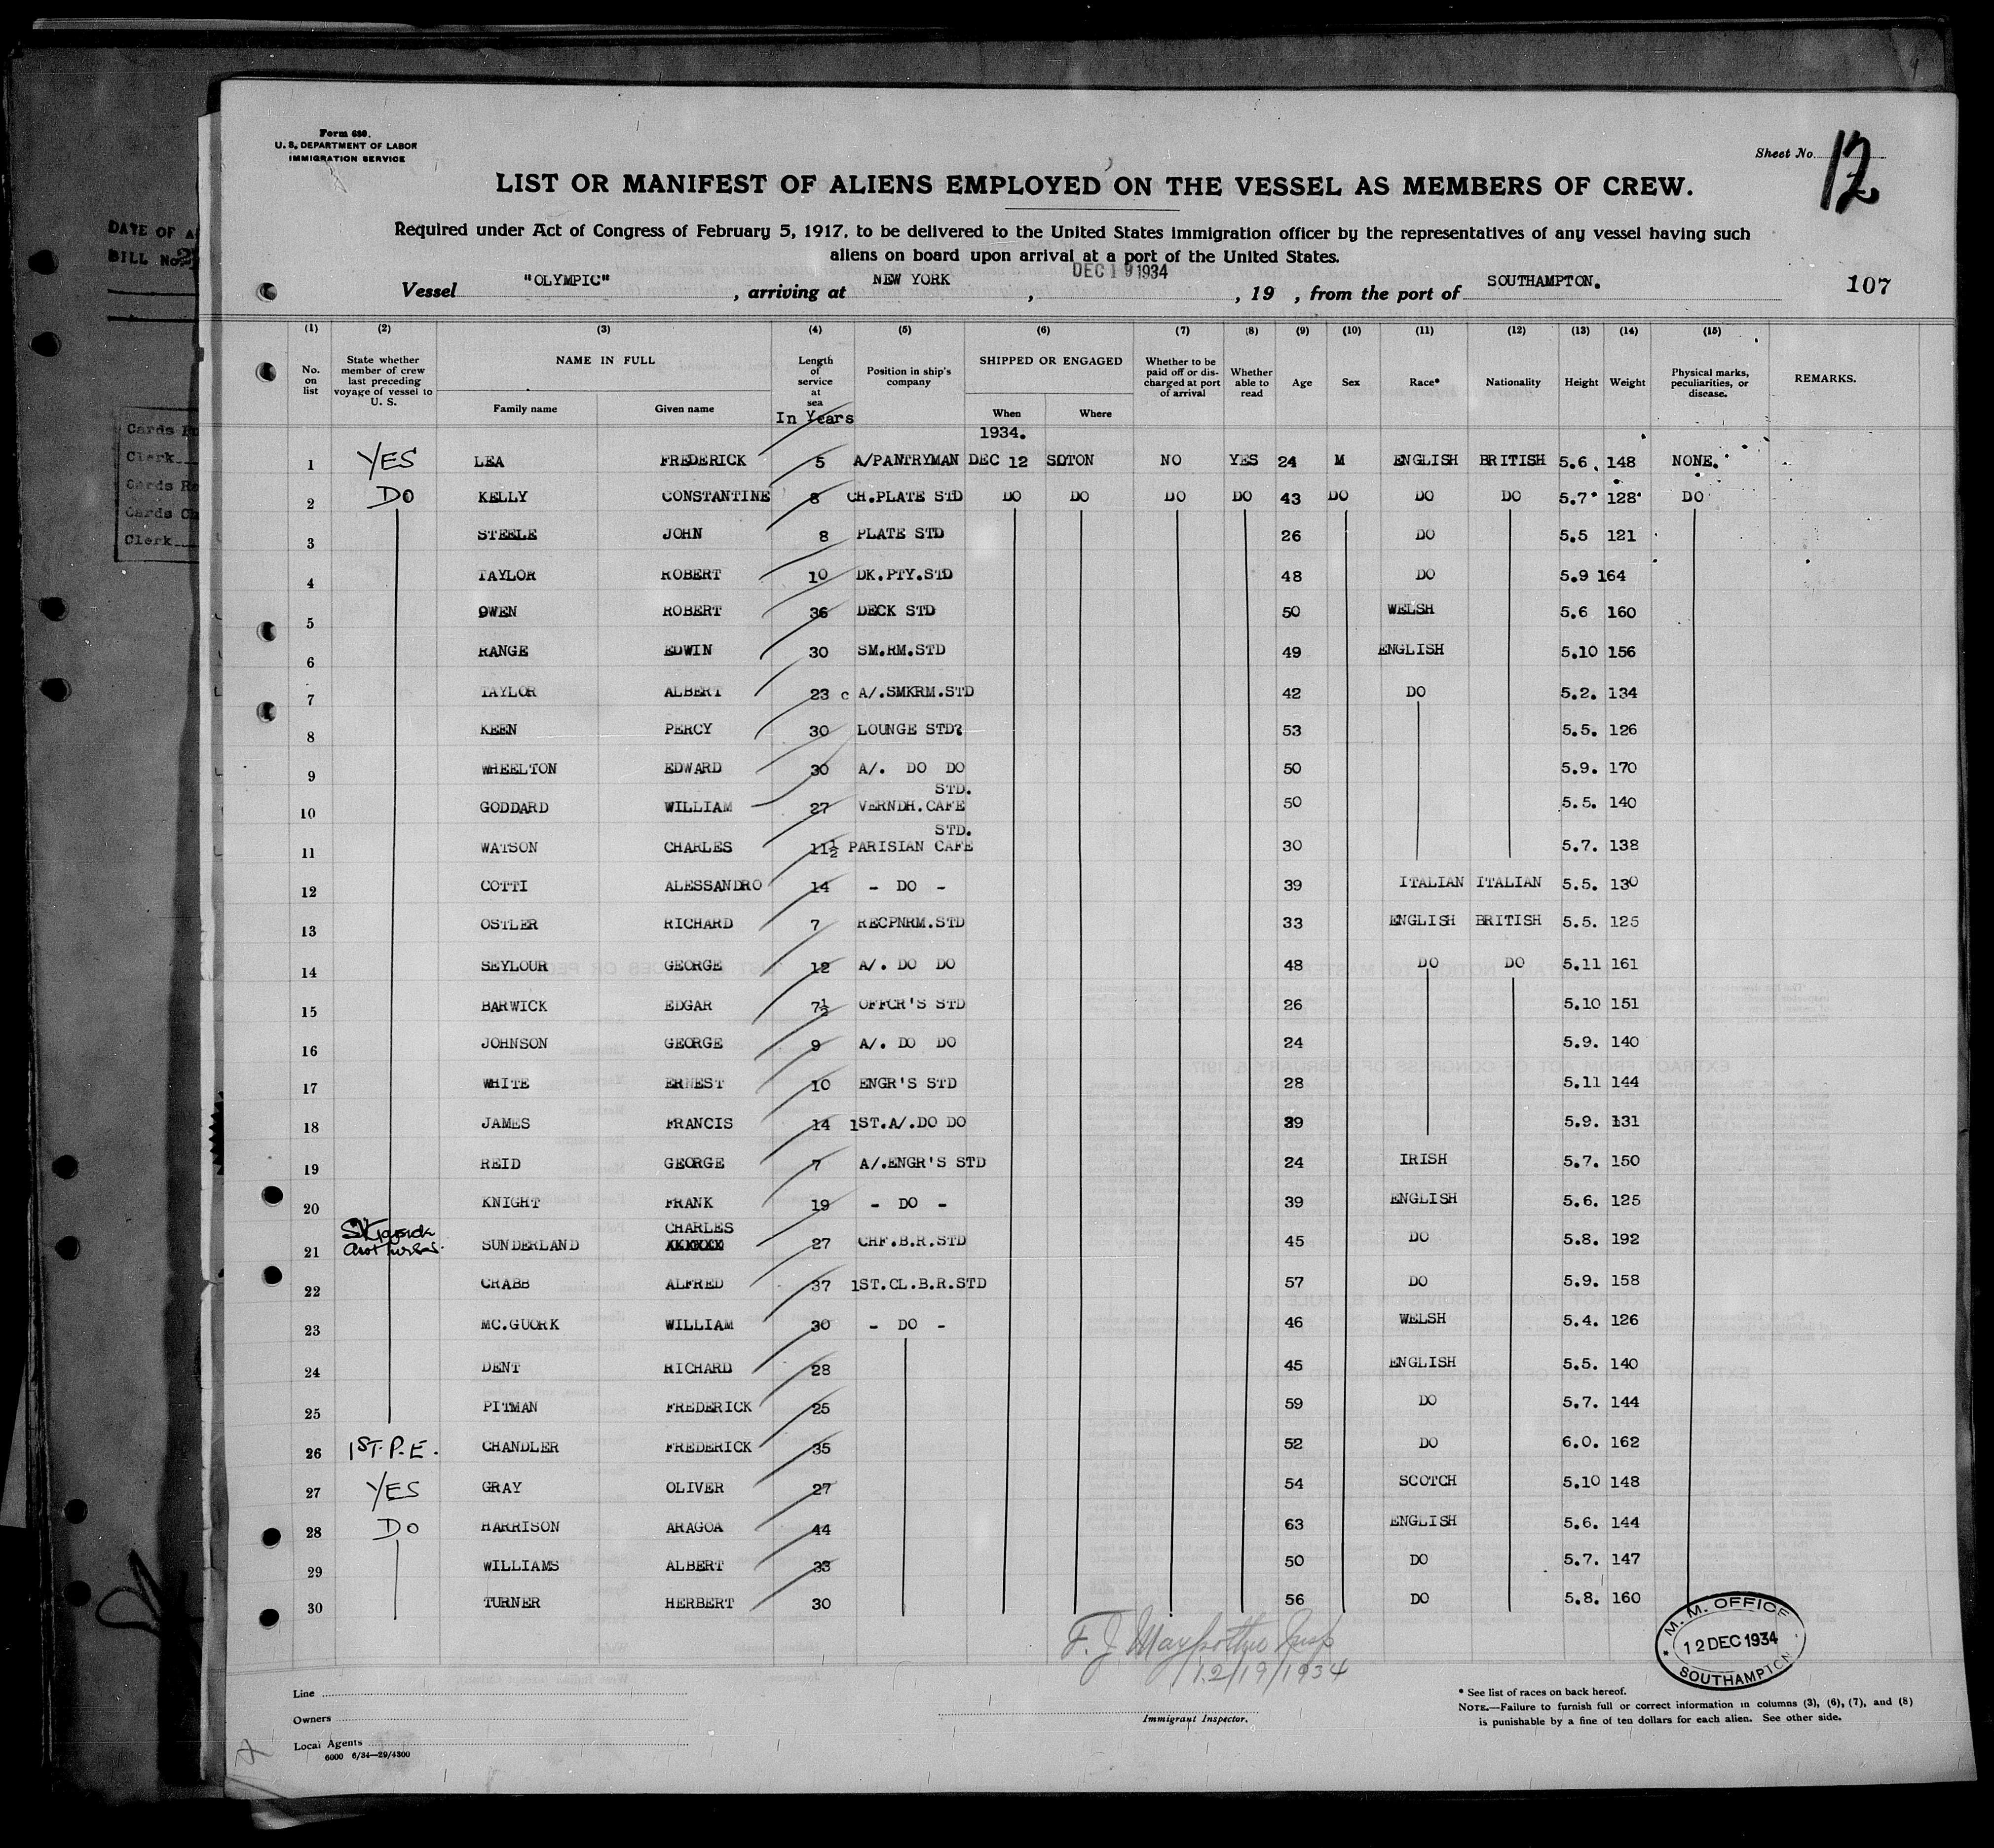 Form 680.
U. S. DEPARTMENT OF LABOR
IMMIGRATION SERVICE
Sheet No. 12
LIST OR MANIFEST OF ALIENS EMPLOYED ON THE VESSEL AS MEMBERS OF CREW.
Required under Act of Congress of February 5, 1917, to be delivered to the United States immigration officer by the representatives of any vessel having such
aliens on board upon arrival at a port of the United States.
Vessel "OLYMPIC", arriving at NEW YORK, DEC 19 1934, 19 , from the port of SOUTHAMPTON. 107
DATE OF
BILL No.
Cards
Clerk
Cards
Cards
Clerk
(1) (2) (3) (4) (5) (6) (7) (8) (9) (10) (11) (12) (13) (14) (15)
No. on list State whether member of crew last preceding voyage of vessel to U. S. NAME IN FULL Family name Given name Length of service at sea In Years Position in ship's company SHIPPED OR ENGAGED When Where Whether to be paid off or discharged at port of arrival Whether able to read Age Sex Race* Nationality Height Weight Physical marks, peculiarities, or disease. REMARKS.
1934.
1 YES LEA FREDERICK 5 A/PANTRYMAN DEC 12 SOTON NO YES 24 M ENGLISH BRITISH 5.6. 148 NONE.
2 DO KELLY CONSTANTINE 8 CH.PLATE STD DO DO DO DO 43 DO DO DO 5.7 128 DO
3 STEELE JOHN 8 PLATE STD 26 DO 5.5 121
4 TAYLOR ROBERT 10 DK.PTY.STD 48 DO 5.9 164
5 OWEN ROBERT 36 DECK STD 50 WELSH 5.6 160
6 RANGE EDWIN 30 SM.RM.STD 49 ENGLISH 5.10 156
7 TAYLOR ALBERT 23 c A/.SMKRM.STD 42 DO 5.2. 134
8 KEEN PERCY 30 LOUNGE STD? 53 5.5. 126
9 WHEELTON EDWARD 30 A/. DO DO 50 5.9. 170
10 GODDARD WILLIAM 27 VERNDH.CAFE STD. 50 5.5. 140
11 WATSON CHARLES 11½ PARISIAN CAFE STD. 30 5.7. 138
12 COTTI ALESSANDRO 14 - DO - 39 ITALIAN ITALIAN 5.5. 130
13 OSTLER RICHARD 7 RECPNRM.STD 33 ENGLISH BRITISH 5.5. 125
14 SEYLOUR GEORGE 12 A/. DO DO 48 DO DO 5.11 161
15 BARWICK EDGAR 7½ OFFCR'S STD 26 5.10 151
16 JOHNSON GEORGE 9 A/. DO DO 24 5.9. 140
17 WHITE ERNEST 10 ENGR'S STD 28 5.11 144
18 JAMES FRANCIS 14 1ST.A/.DO DO 39 5.9. 131
19 REID GEORGE 7 A/.ENGR'S STD 24 IRISH 5.7. 150
20 KNIGHT FRANK 19 - DO - 39 ENGLISH 5.6. 125
21 SUNDERLAND CHARLES 27 CHF.B.R.STD 45 DO 5.8. 192
22 CRABB ALFRED 37 1ST.CL.B.R.STD 57 DO 5.9. 158
23 MC.GUORK WILLIAM 30 - DO - 46 WELSH 5.4. 126
24 DENT RICHARD 28 45 ENGLISH 5.5. 140
25 PITMAN FREDERICK 25 59 DO 5.7. 144
26 1ST.P.E. CHANDLER FREDERICK 35 52 DO 6.0. 162
27 YES GRAY OLIVER 27 54 SCOTCH 5.10 148
28 DO HARRISON ARAGOA 44 63 ENGLISH 5.6. 144
29 WILLIAMS ALBERT 33 50 DO 5.7. 147
30 TURNER HERBERT 30 56 DO 5.8. 160
F. J. Insp
12/19/1934
M. M. OFFICE
12 DEC 1934
SOUTHAMPTON
Line
Owners
Local Agents
6000 6/34—29/4300
Immigrant Inspector.
* See list of races on back hereof.
NOTE.—Failure to furnish full or correct information in columns (3), (6), (7), and (8)
is punishable by a fine of ten dollars for each alien. See other side.